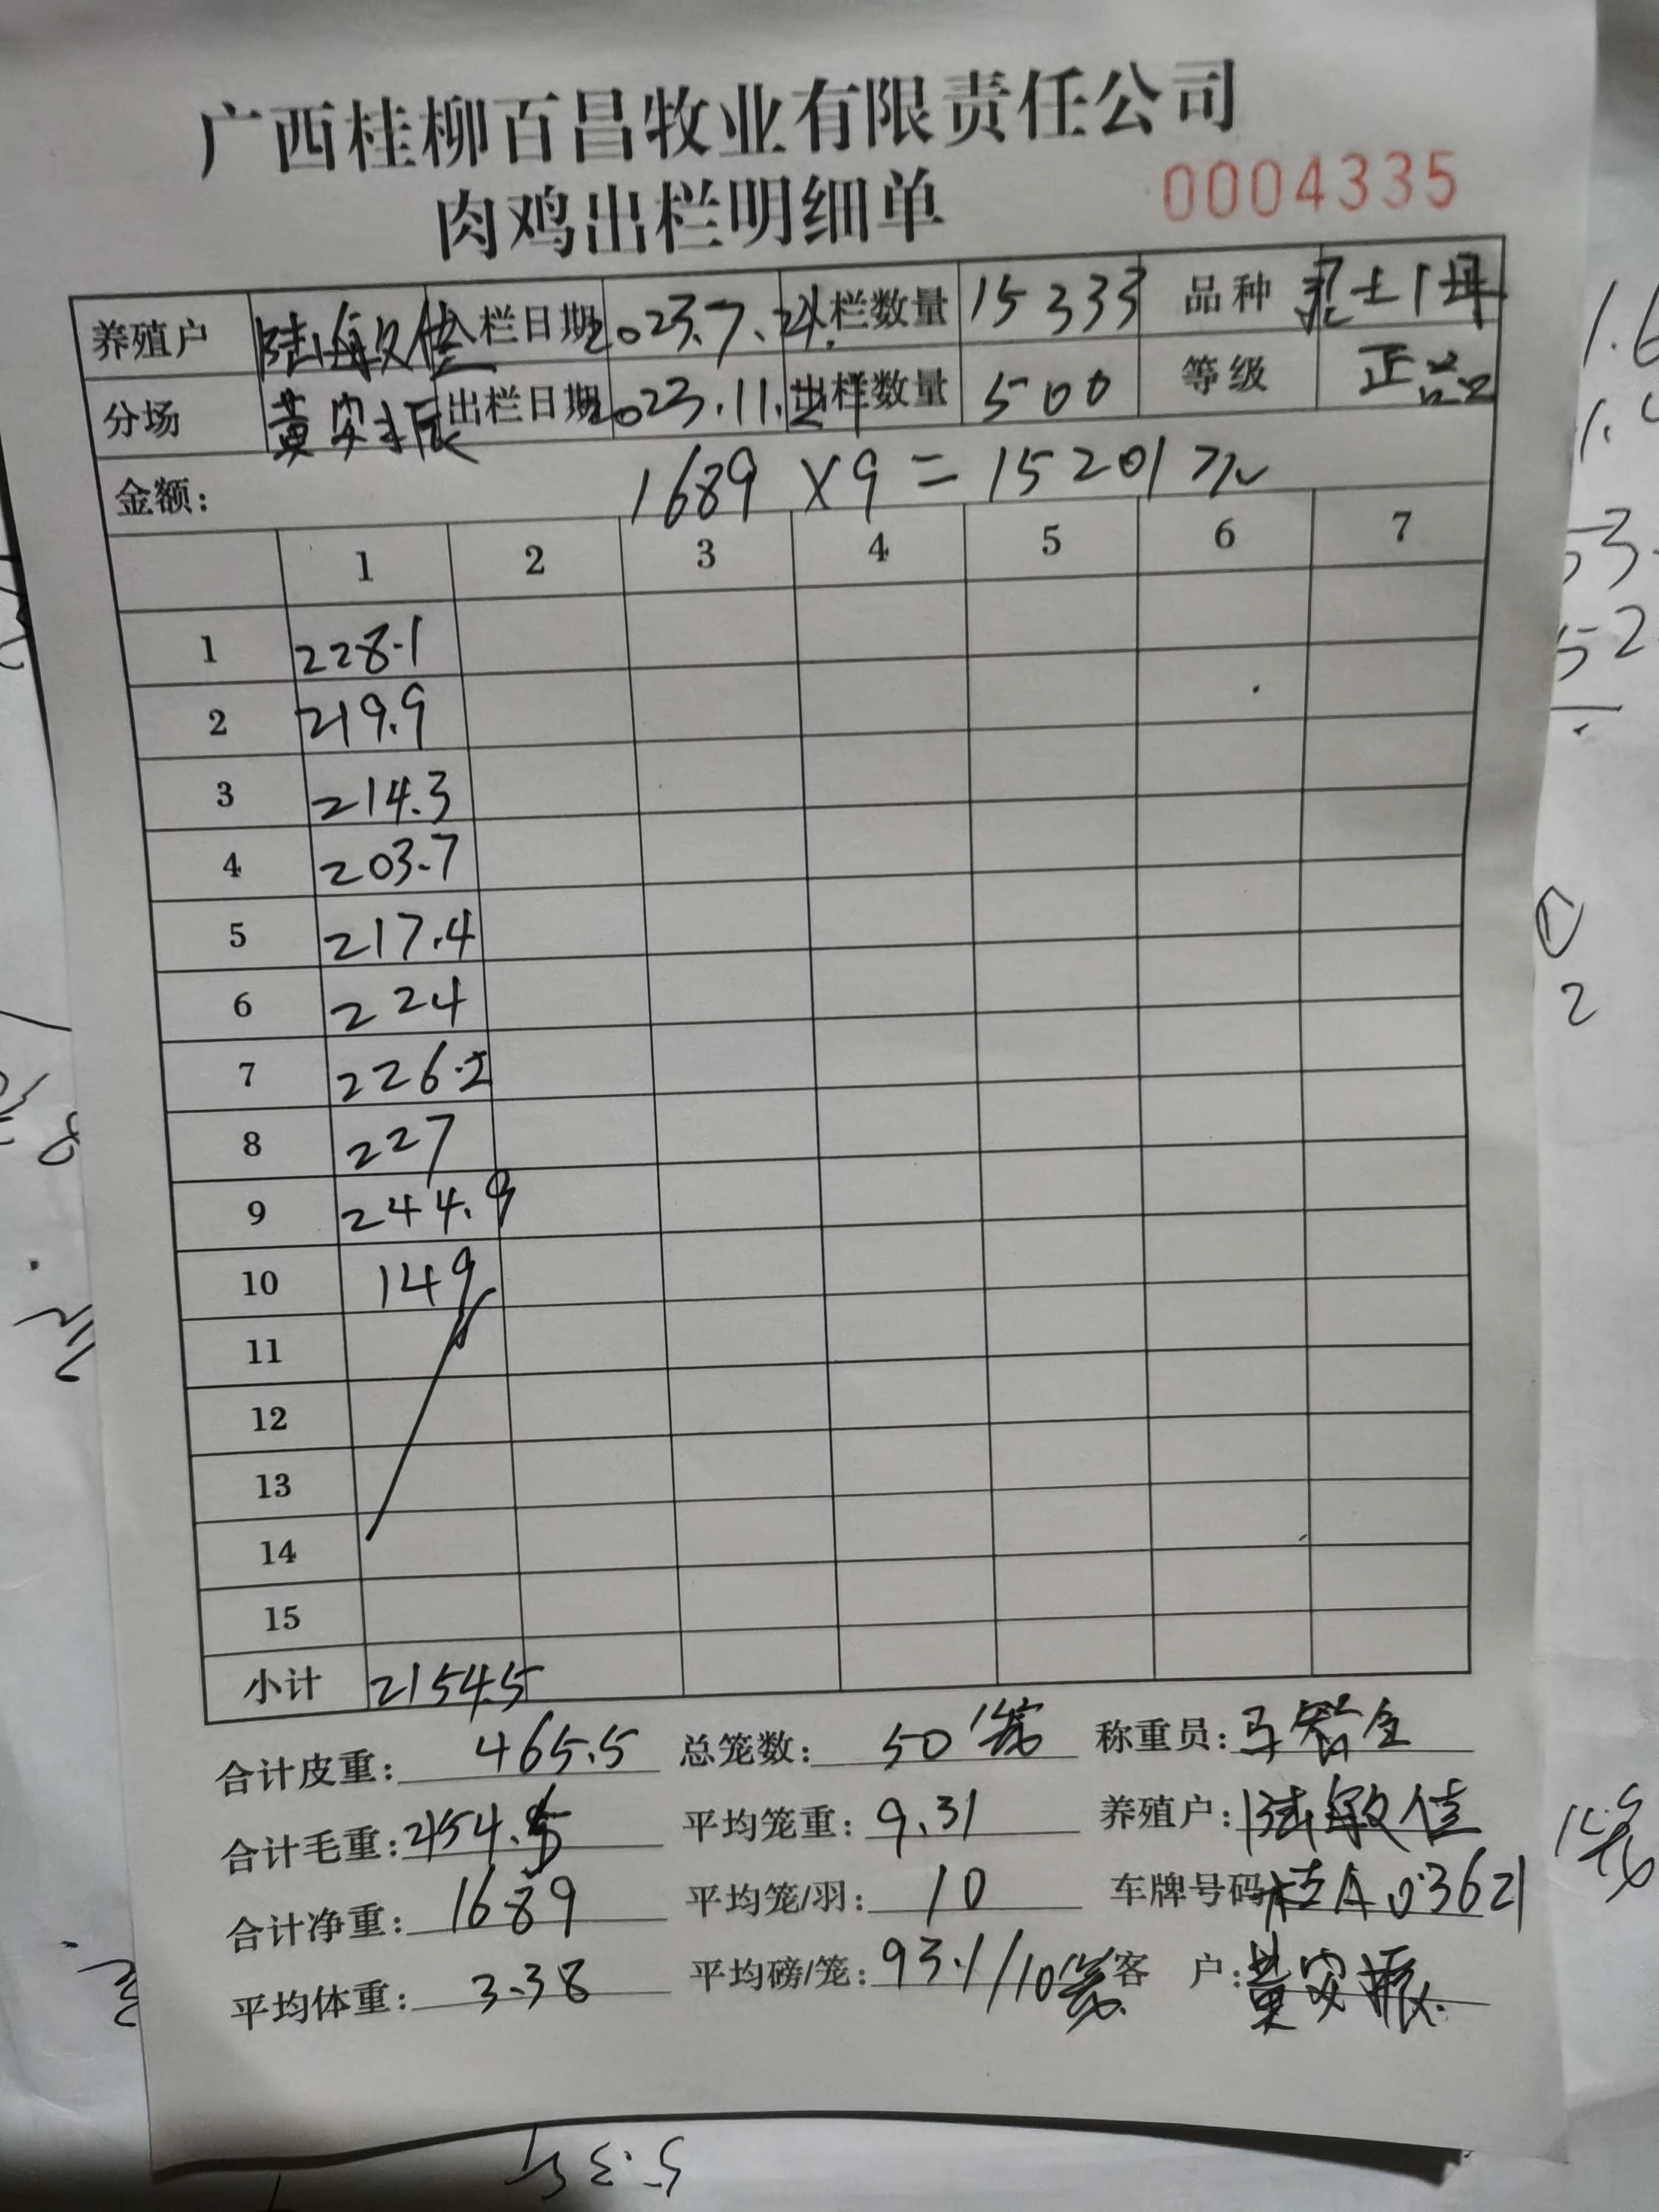 广西桂柳百昌牧业有限责任公司
肉鸡出栏明细单 0004335
养殖户 陆敏佳 入栏日期 2023.7.21. 入栏数量 15333 品种
分场 黄安振 出栏日期 2023.11.21 出栏数量 500 等级 正品
金额: 1689×9=15201元
1 2 3 4 5 6 7
1 228.1
2 219.9
3 214.3
4 203.7
5 217.4
6 224
7 226.2
8 227
9 244.9
10 149
11
12
13
14
15
小计 2154.5
合计皮重: 465.5 总笼数: 50笼 称重员: 马智全
合计毛重: 2154.5 平均笼重: 9.31 养殖户: 陆敏佳
合计净重: 1689 平均笼/羽: 10 车牌号码 桂A03621
平均体重: 3.38 平均磅/笼: 93.1/10笼 客户: 黄安振